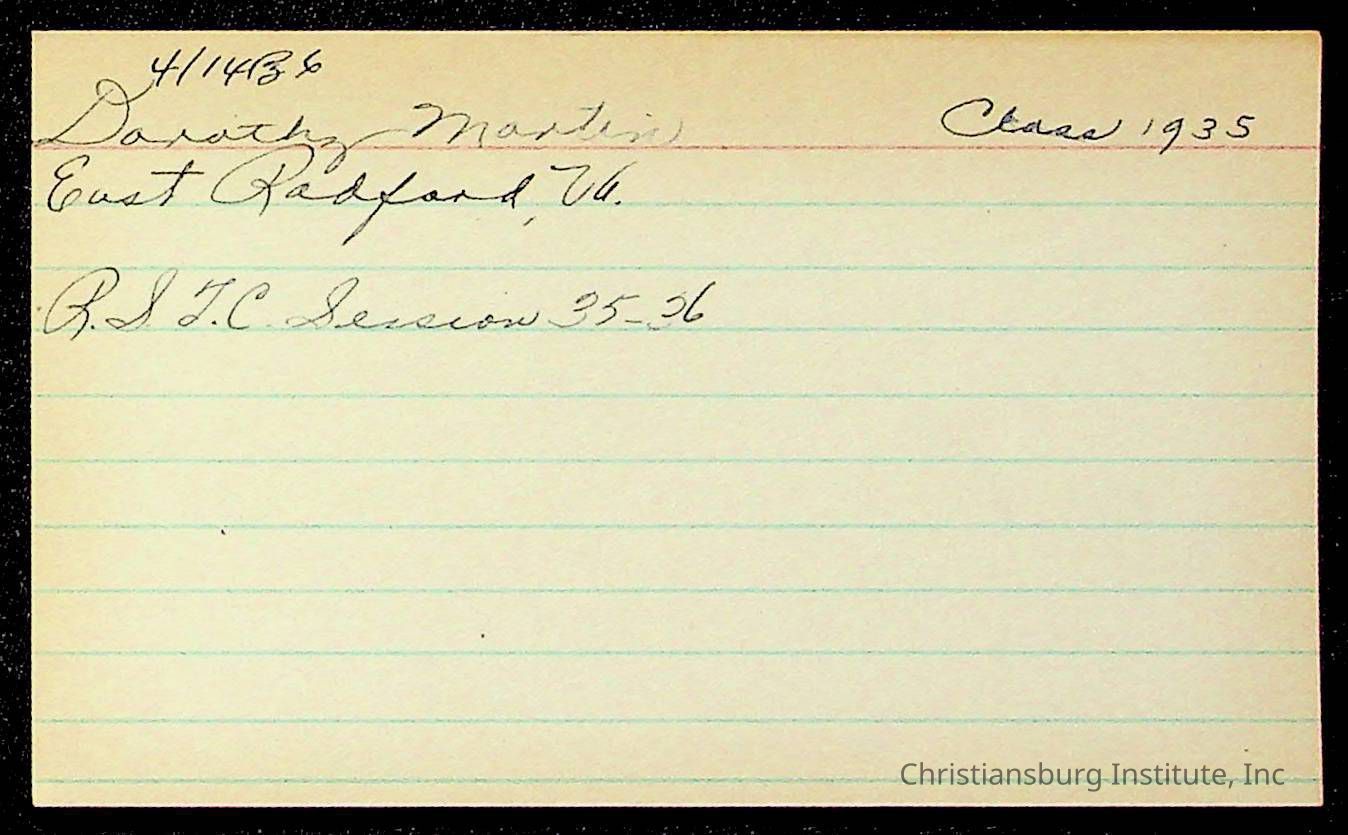 4/14/36
Dorothy Martin Class 1935
East Radford, Va.
R.S.T.C. Session 35-36
Christiansburg Institute, Inc